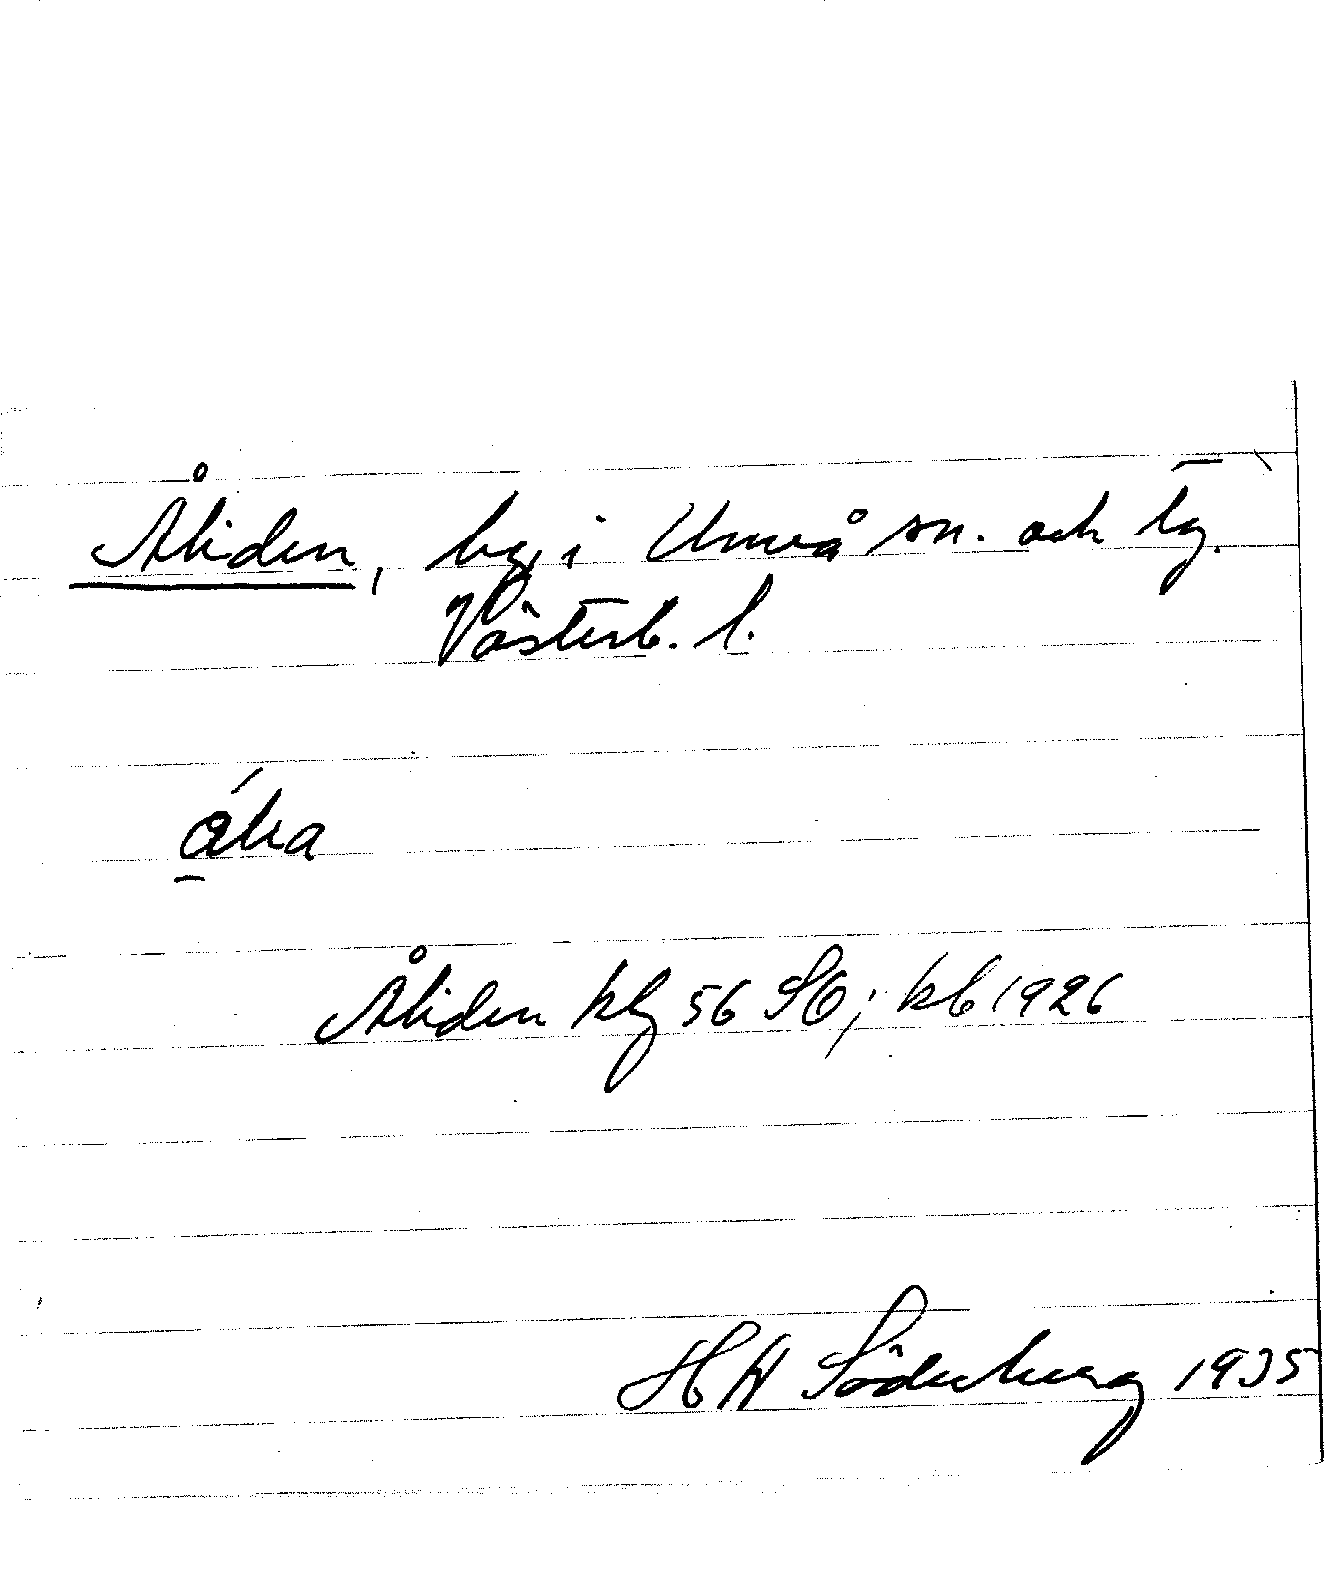 Åliden, by i Umeå sn. och tg.
Västerb. l.
Åliden kbg 56 SO; kb 1926
HW Söderberg 1935